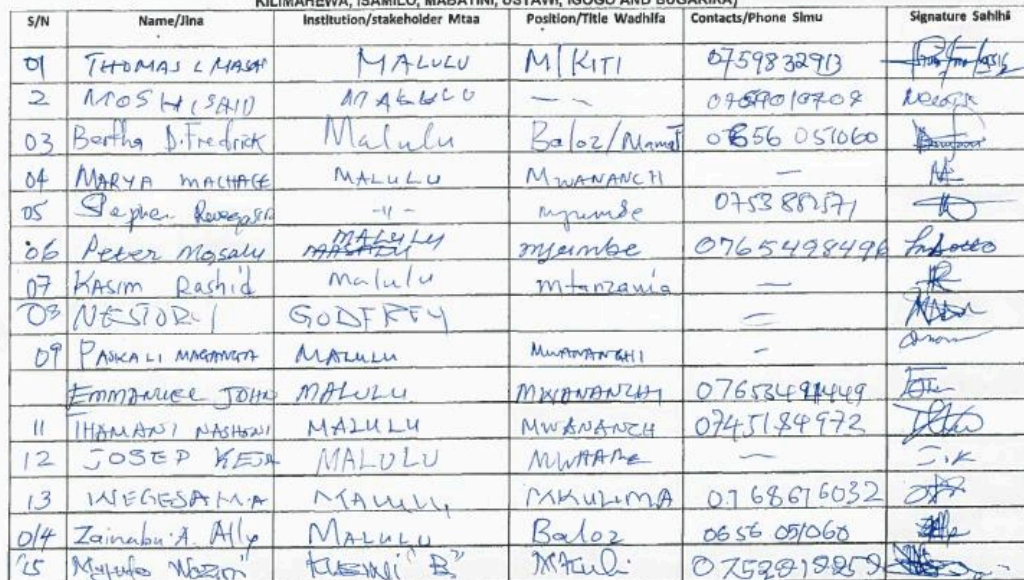 KILIMAHEWA, ISAMILO, MABATINI, USTAWI, IGOGO AND BUGARIKA)
S/N Name/Jina Institution/stakeholder Mtaa Position/Title Wadhifa Contacts/Phone Simu Signature Sahihi
01 THOMAS L MASAI MALULU M/KITI 0759832913
2 MOSHI SAID MALULU -- 0769010709
03 Bertha D. Fredrick Malulu Baloz/Mama 0656 051060
04 MARYA MACHAGE MALULU MWANANCH —
05 Stephen -11- mjumbe
06 Peter Mosalu MALULU mjumbe 0765498496
07 KASIM Rashid Malulu mtanzania —
08 NESTORY GODFREY —
09 PASKALI MAGANGA MALULU MWANANCHI -
EMMANUEL JOHN MALULU MWANANCHI
11 THAMANI NASHONI MALULU MWANANCH 0745184972
12 JOSEP KEJA MALULU — J.K
13 MALULU MKULIMA 0768676032
014 Zainabu A. Ally MALULU Baloz 0656 051060
15 "B" Mkuli